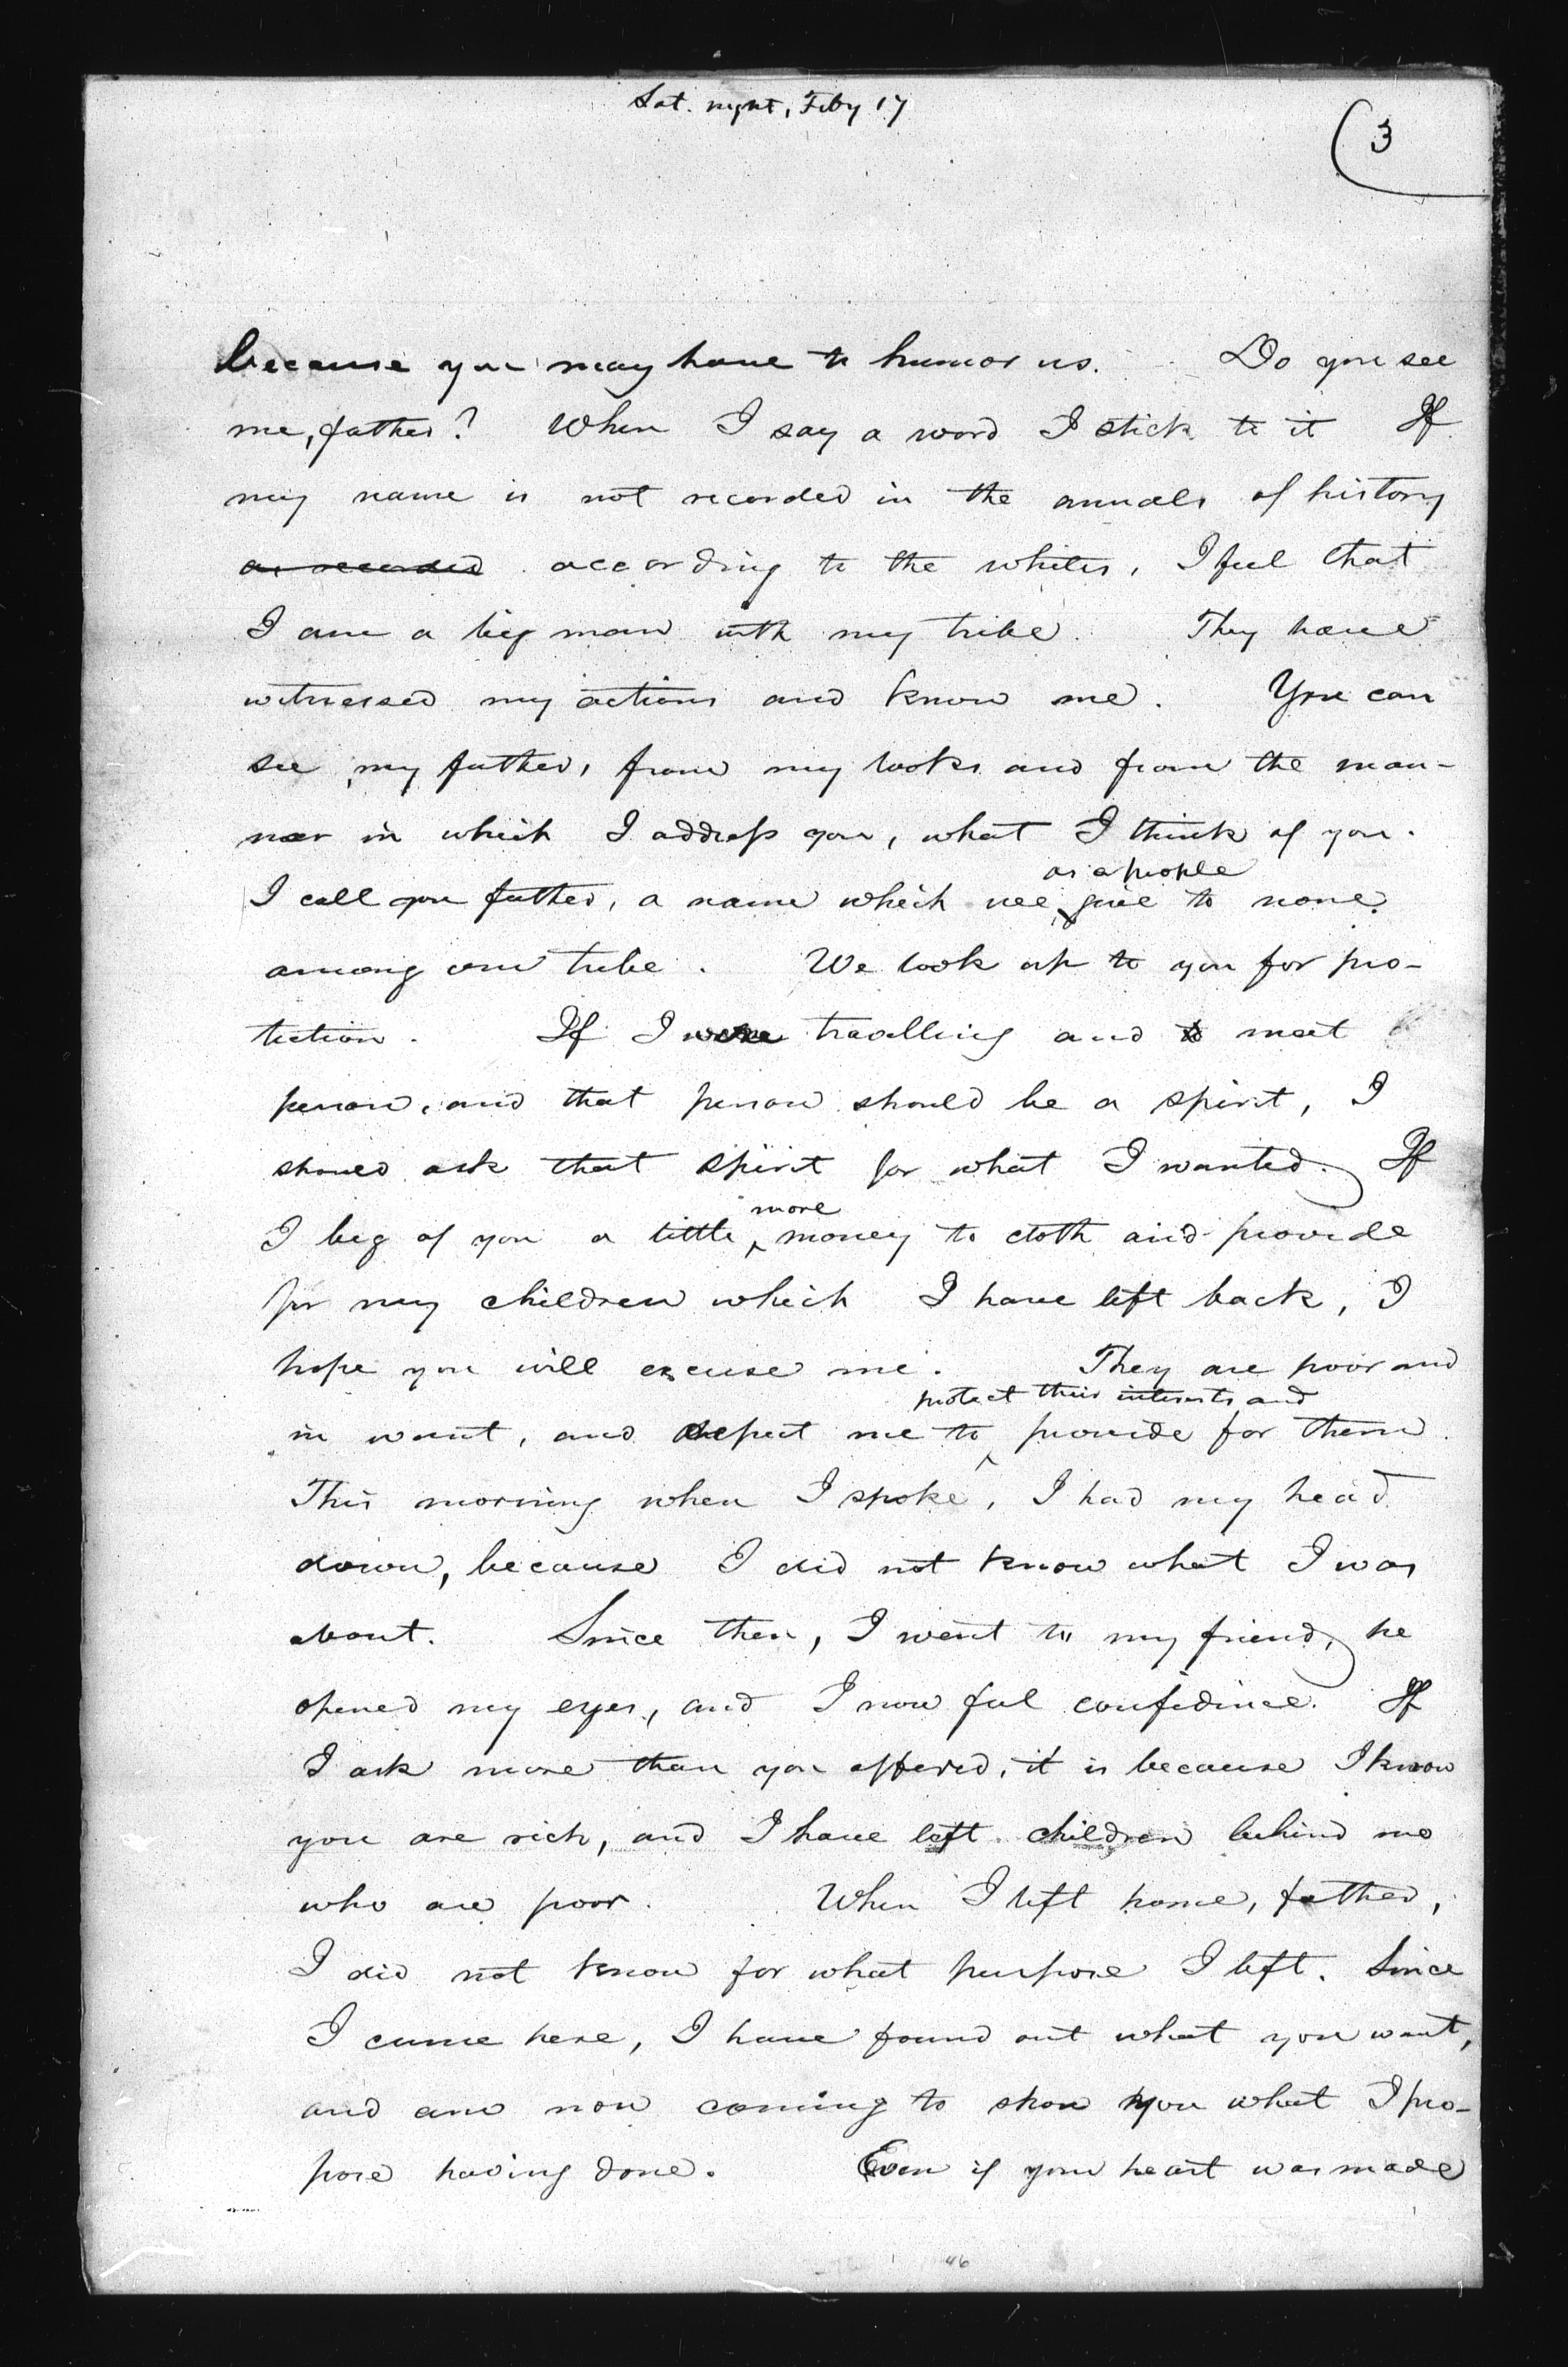 Sat. night, Feby 17
3
because you may have to humor us. Do you see
me, father? When I say a word I stick to it If
my name is not recorded in the annals of history
as recorded according to the whites, I feel that
I am a big man with my tribe. They have
witnessed my actions and know me. You can
see, my father, from my looks and from the man-
ner in which I address you, what I think of you.
as a people
I call you father, a name which we give to none
among our tribe. We look up to you for pro-
tection. If I were travelling and to meet a
person, and that person should be a spirit, I
should ask that spirit for what I wanted. If
more
I beg of you a little money to cloth and provide
for my children which I have left back, I
hope you will excuse me. They are poor and
protect their interests and
in want, and expect me to provide for them.
This morning when I spoke, I had my head
down, because I did not know what I was
about. Since then, I went to my friend, he
opened my eyes, and I now feel confidence. If
I ask more than you offered, it is because I know
you are rich, and I have left children behind me
who are poor. When I left home, father,
I did not know for what purpose I left. Since
I came here, I have found out what you want,
and am now coming to show you what I pro-
pose having done. Even if your heart was made
46